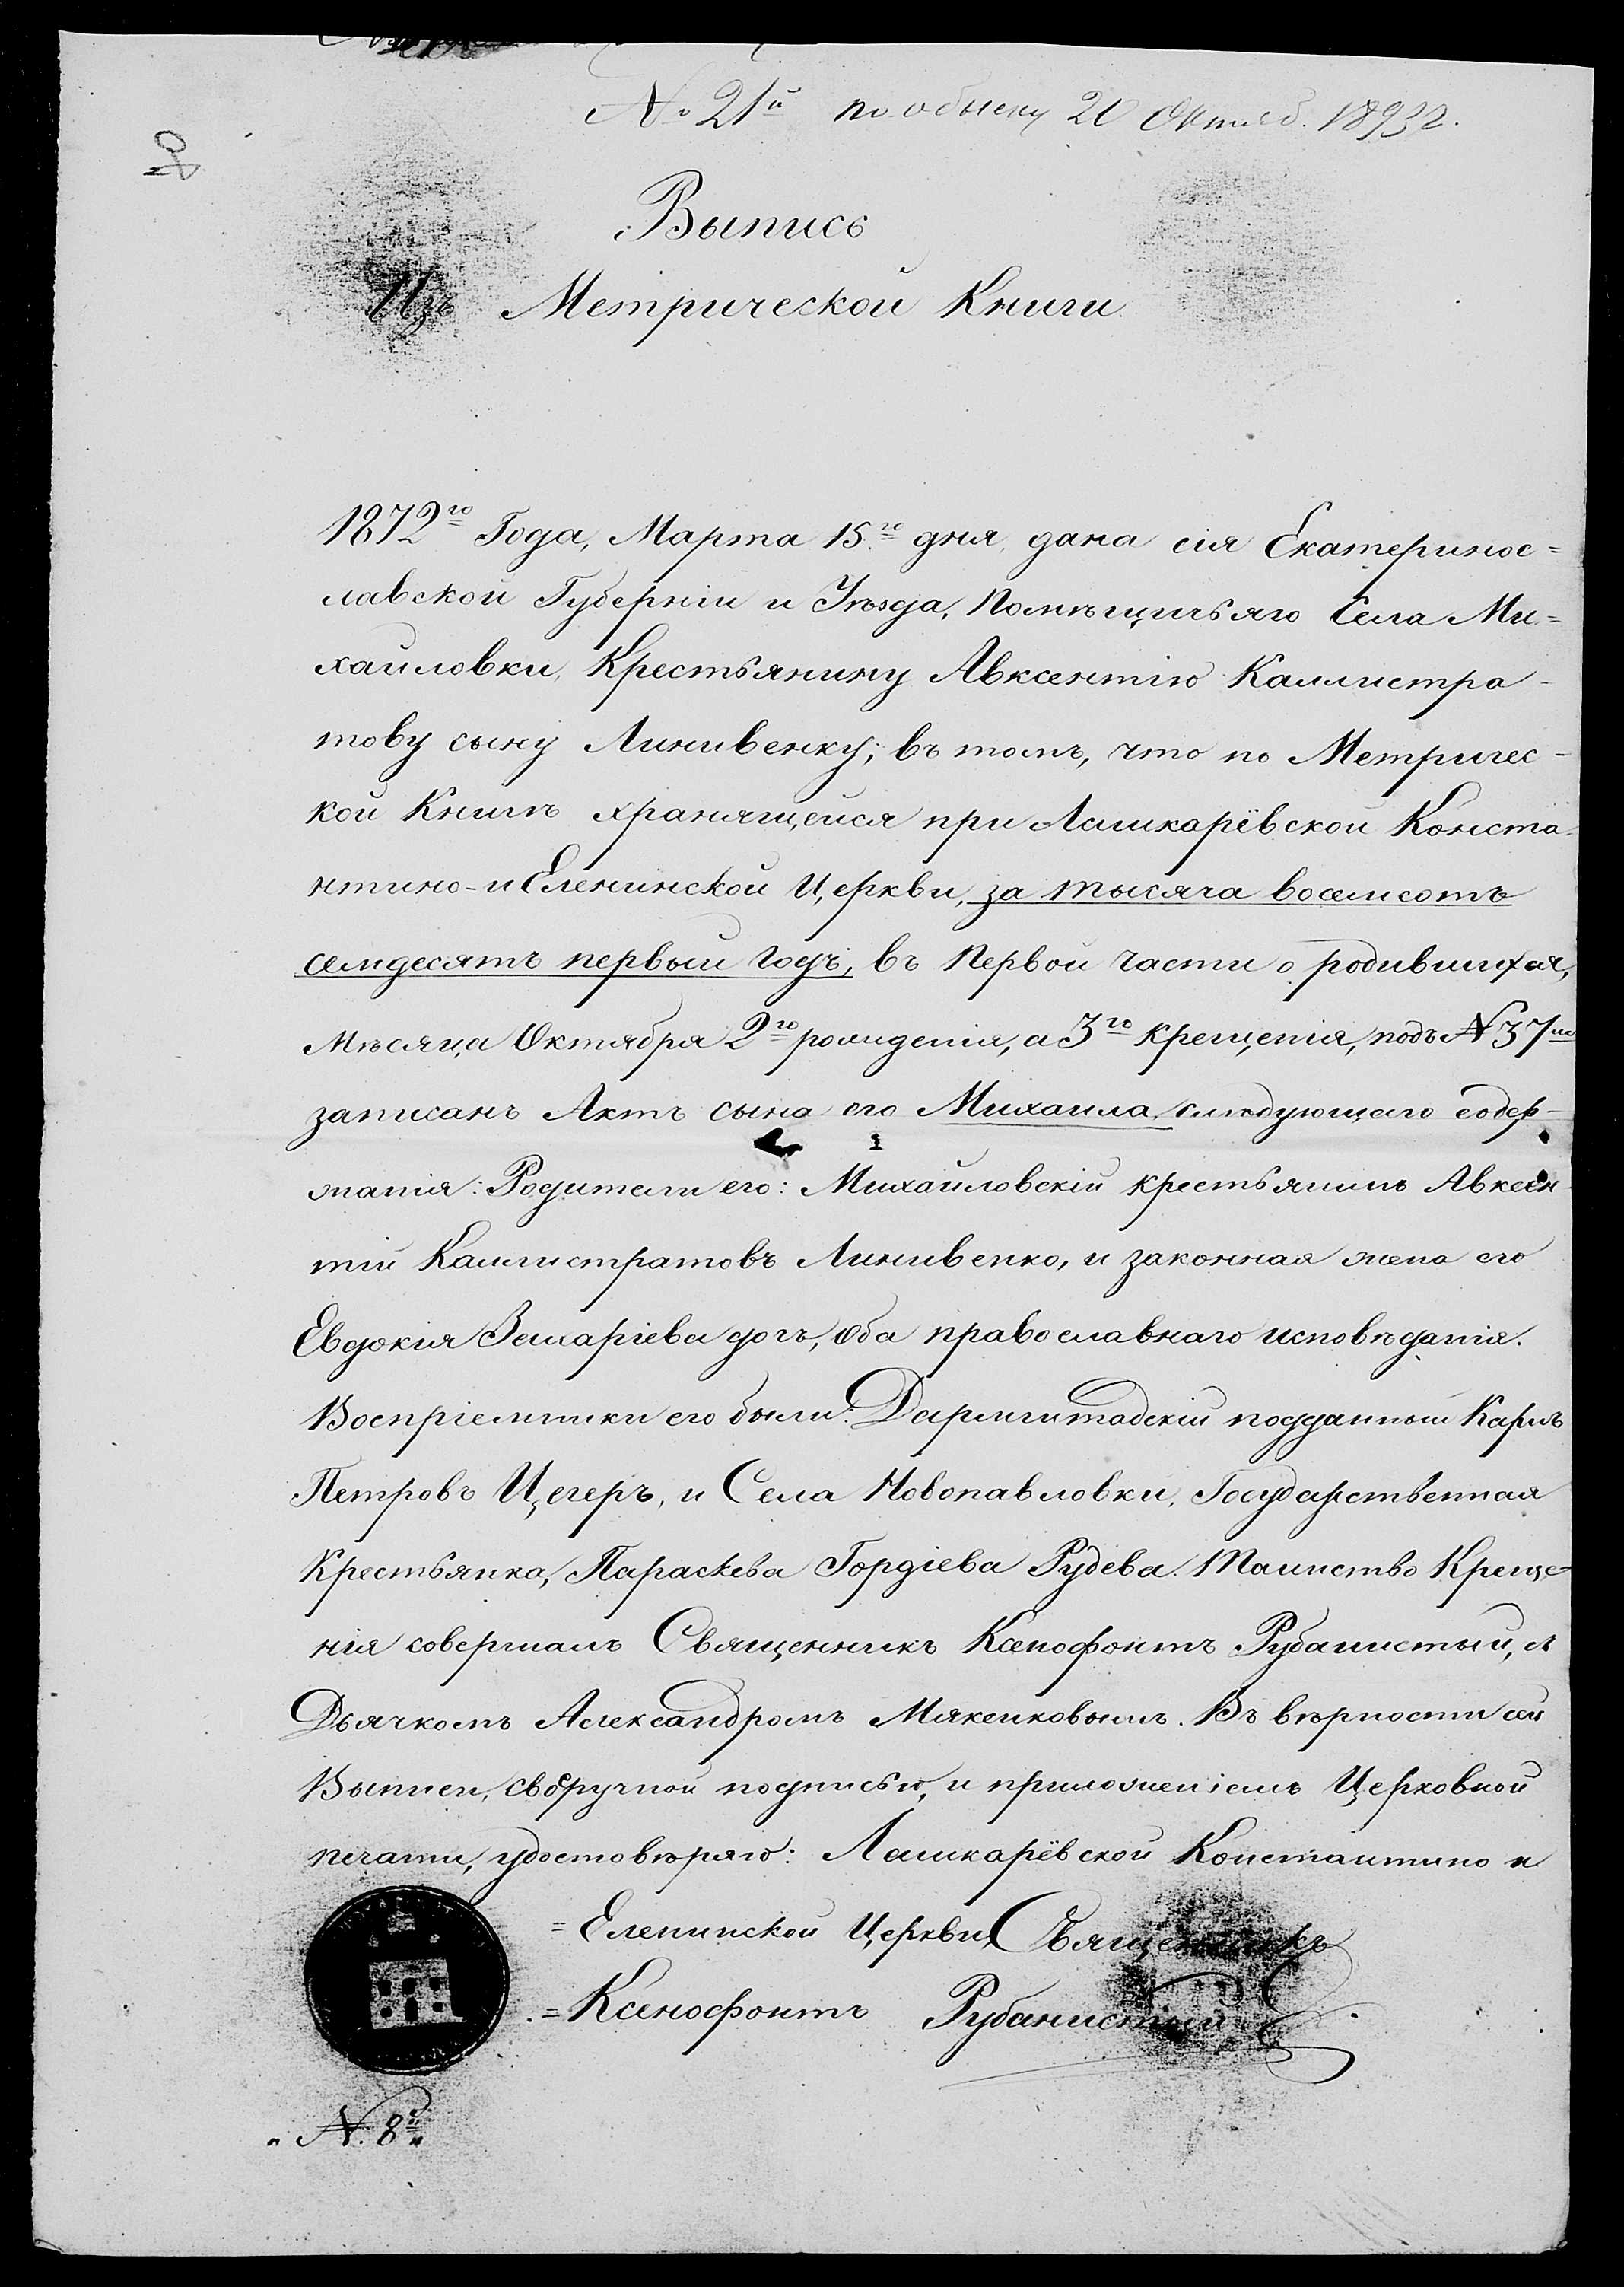 № 21й по обыску 20 Октяб. 1893 г.
Выпись
Изъ Метрической Книги
1872го Года, Марта 15го дня, дана сія Екатеринос=
лавской Губерніи и Уѣзда, Помѣщичьяго Села Ми=
хайловки, Крестьянину Авксентію Каллистра-
тову сыну Линивенку; въ томъ, что по Метричес-
кой Книгѣ хранящейся при Лашкарёвской Конста-
нтино-и Еленинской Церкви, за тысяча восемсотъ
семдесятъ первый годъ, въ Первой части о родившихся,
Мѣсяца Октября 2го рожденія, а 3го Крещенія, подъ № 37мъ
записанъ Актъ сына его Михаила, слѣдующаго содер-
жанія: Родители его: Михайловскій крестьянинъ Авксен-
тій Каллистратовъ Линивенко, и законная жена его
Евдокія Захаріева дочь, оба православнаго исповѣданія.
Воспріемники его были: Дармштадскій подданный Карлъ
Петровъ Цегеръ, и Села Новопавловки, Государственная
Крестьянка, Параскева Гордіева Рудева. Таинство Креще=
нія совершалъ Священникъ Ксенофонтъ Рубанистый, съ
Дьячкомъ Александромъ Мякенковымъ. Въ вѣрности сей
Выписи, своеручной подписью, и приложеніемъ Церковной
печати, удостовѣряю: Лашкарёвской Константино и
= Еленинской Церкви, Священникъ
= Ксенофонтъ Рубанистый
№ 8й